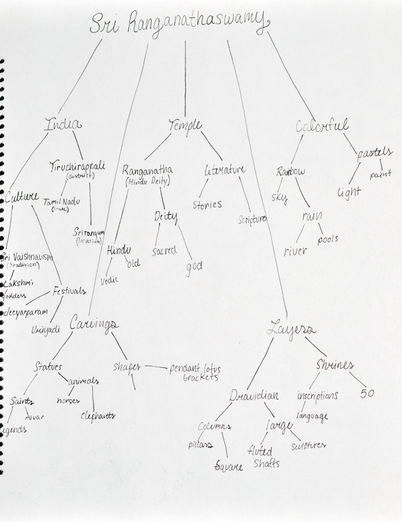 Sri Ranganathaswamy
India
Temple
Colorful
Culture
Tiruchirappali
(district)
Tamil Nadu
Srirangam
Ranganatha
(Hindu Deity)
Literature
Stories
Scripture
Deity
sacred
god
Hindu
old
vedic
Rainbow
sky
rain
river
pools
pastels
paint
light
Sri Vaishnavism
(tradition)
Lakshmi
Goddess
Festivals
Jeeyarparam
Unjyadi
Carvings
Statues
animals
horses
elephants
Saints
Alvar
legends
shapes
pendant lotus
brackets
Layers
Dravidian
Columns
pillars
square
large
fluted
shafts
sculptures
Shrines
inscriptions
language
50